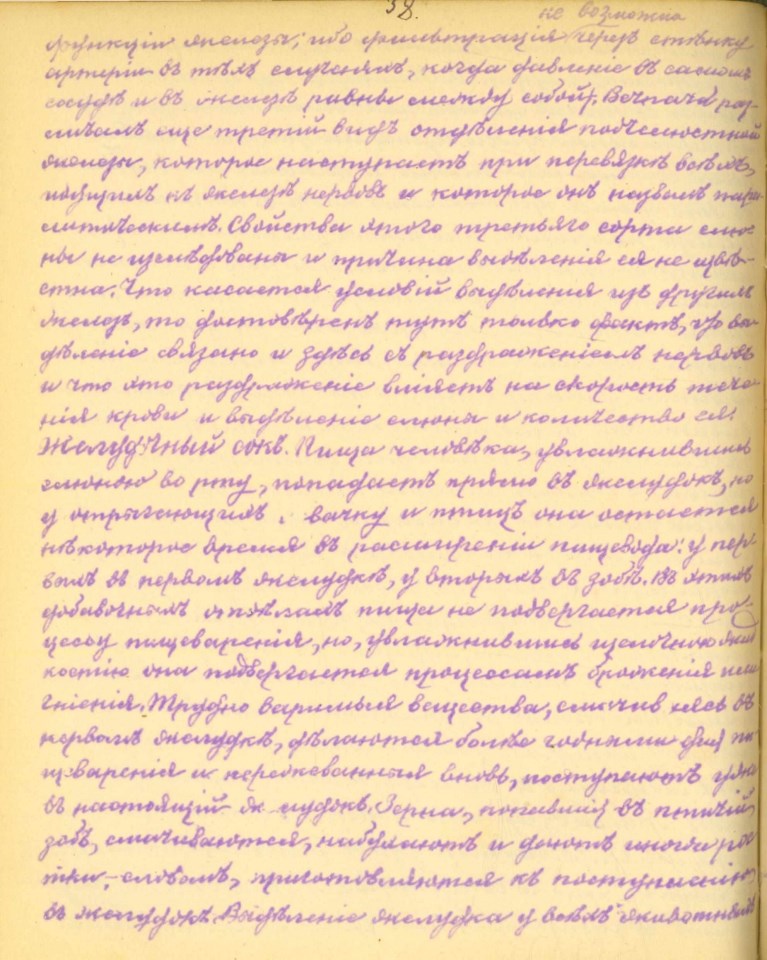 38.
не возможна
функціи железы; ибо фильтрація черезъ стѣнку
артеріи въ тѣхъ случаяхъ, когда давленіе въ самомъ
сосудѣ и въ железѣ равны между собой). раз-
личаетъ еще третій видъ отдѣленія подчелюстной
железы, которое наступаетъ при перевязкѣ всѣхъ,
идущихъ къ железѣ нервовъ и которое онъ назвалъ пара-
литическимъ. Свойства этого третьяго сорта слю-
ны не изслѣдованы и причина выдѣленія ея не извѣ-
стна. Что касается условій выдѣленія изъ другихъ
железъ, то достовѣренъ тутъ только фактъ, что вы-
дѣленіе связано и здѣсь съ раздраженіемъ нервовъ
и что это раздраженіе вліяетъ на скорость тече-
нія крови и выдѣленіе слюны и количество ея.
Желудочный сокъ. Пища человѣка, увлажнившись
слюною во рту, попадаетъ прямо въ желудокъ, но
у отрыгающихъ жвачку и птицъ она остается
нѣкоторое время въ расширеніи пищевода: у пер-
выхъ въ первомъ желудкѣ, у вторыхъ въ зобѣ. Въ этихъ
добавочныхъ отдѣлахъ пища не подвергается про-
цессу пищеваренія, но, увлажнившись щелочною жид
костію она подвергается процессамъ броженія или
гніенія. Трудно варимыя вещества, смачиваясь въ
первомъ желудкѣ, дѣлаются болѣе годными для пи
щеваренія и пережеванныя вновь, поступаютъ уже
въ настоящій желудокъ. Зерна, попавшія въ птичій
зобъ, смачиваются, набухаютъ и даютъ иногда рос
тки, словомъ, приготовляются къ поступленію
въ желудокъ. Выдѣленіе желудка у всѣхъ животныхъ